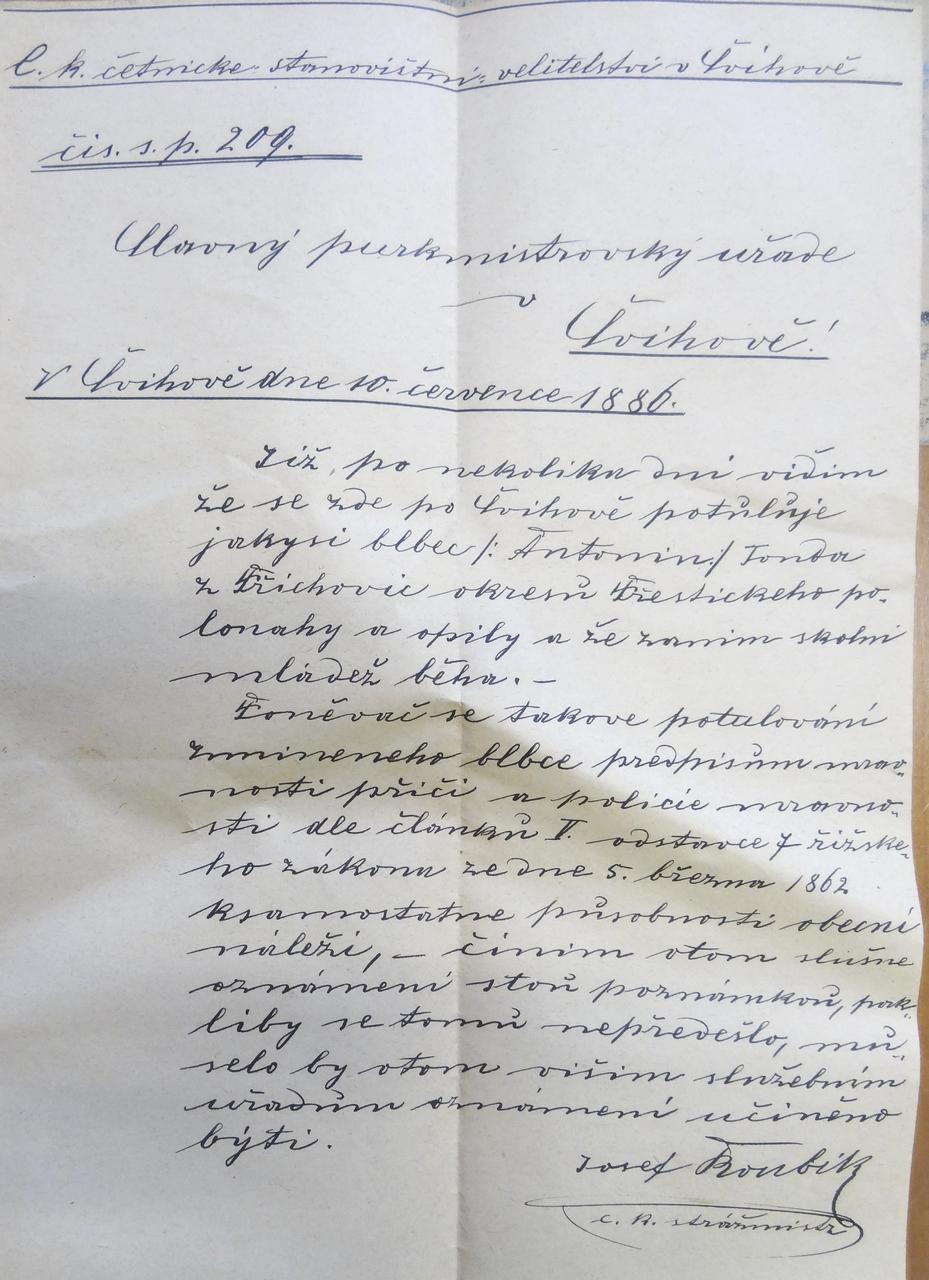 C. k. četnicke stanovištni velitelství v Švihově
čis. s. p. 209.
Slavný purkmistrovský uřade
v
Švihově!
V Švihově dne 10. července 1886.
Již po nekolika dni vidim
že se zde po Švihově potuluje
jakysi blbec /: Antonin :/ Tonda
z Příchovic okresů Přestickeho po-
lonahy a opily a že zanim skolni
mládež běha. —
Poněvač se takove potulování
zmineneho blbce predpisům mrav-
nosti přičí a policie mravno-
sti dle článků V. odstavce 7 řížske-
ho zákona ze dne 5. března 1862
ksamostatne působnosti obecní
náleži, — činim otom slušne
oznámení stoů poznámkoů, pak-
liby se tomů nepředešlo, mů-
selo by otom višim služebním
uřadům oznámení učiněno
býti.
Josef Roubik
c. k. strážmistr